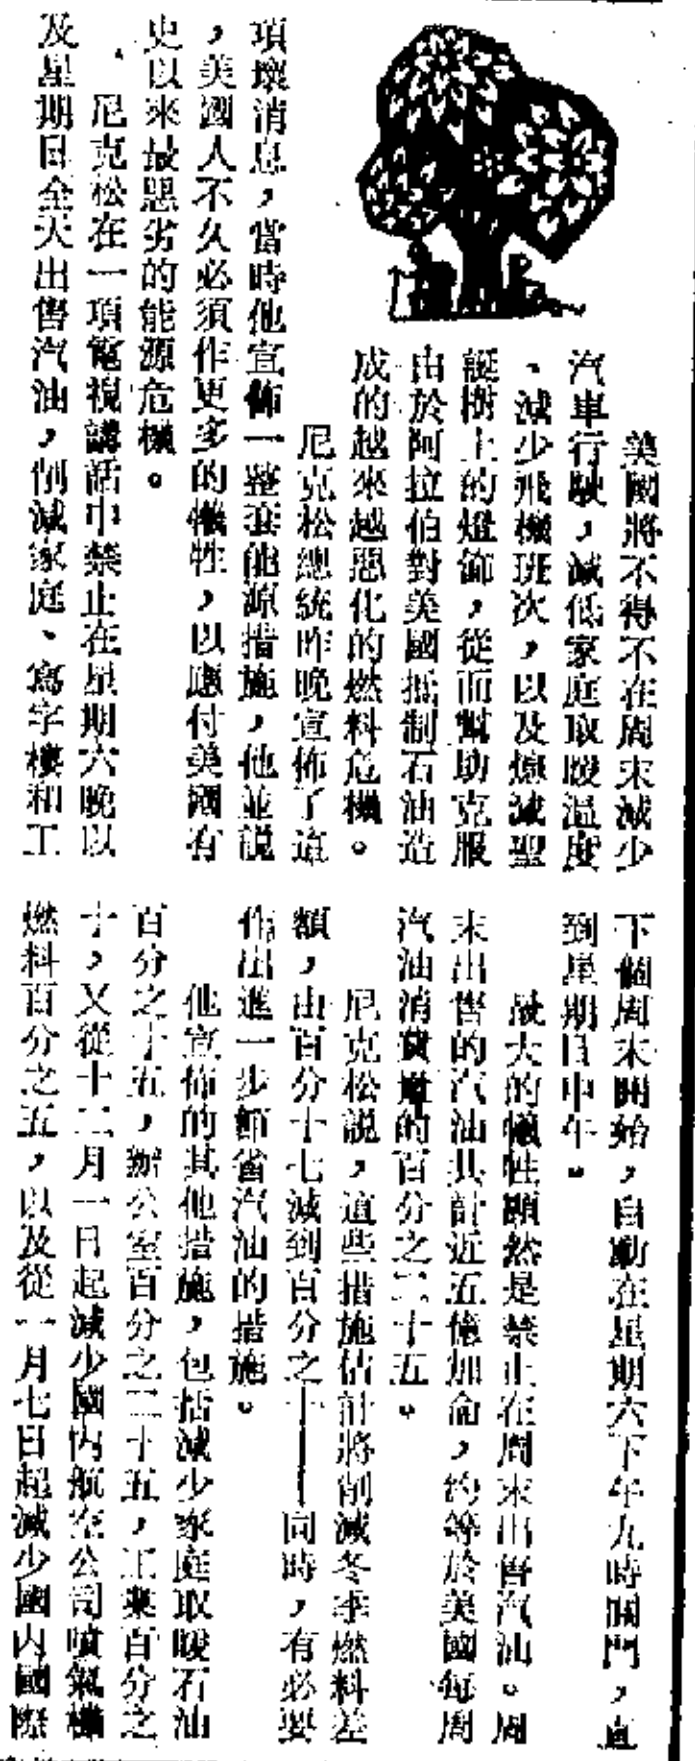 美國將不得不在周末減少
汽車行駛，減低家庭取暖溫度
、減少飛機班次，以及熄滅聖
誕樹上的燈飾，從而幫助克服
由於阿拉伯對美國抵制石油造
成的越來越惡化的燃料危機。
尼克松總統昨晚宣佈了這
項壞消息，當時他宣佈一整套能源措施，他並説
，美國人不久必須作更多的犧牲，以應付美國有
史以來最惡劣的能源危機。
尼克松在一項電視講話中禁止在星期六晚以
及星期日全天出售汽油，削減家庭、寫字樓和工
下個周末開始，自動在星期六下午九時關門，直
到星期日中午。
最大的犧牲顯然是禁止在周末出售汽油。周
末出售的汽油共計近五億加侖，約等於美國每周
汽油消費量的百分之二十五。
尼克松説，這些措施估計將削減冬季燃料差
額，由百分十七減到百分之十——同時，有必要
作出進一步節省汽油的措施。
他宣佈的其他措施，包括減少家庭取暖石油
百分之十五，辦公室百分之二十五，工業百分之
十，又從十二月一日起減少國內航空公司噴氣機
燃料百分之五，以及從一月七日起減少國內國際